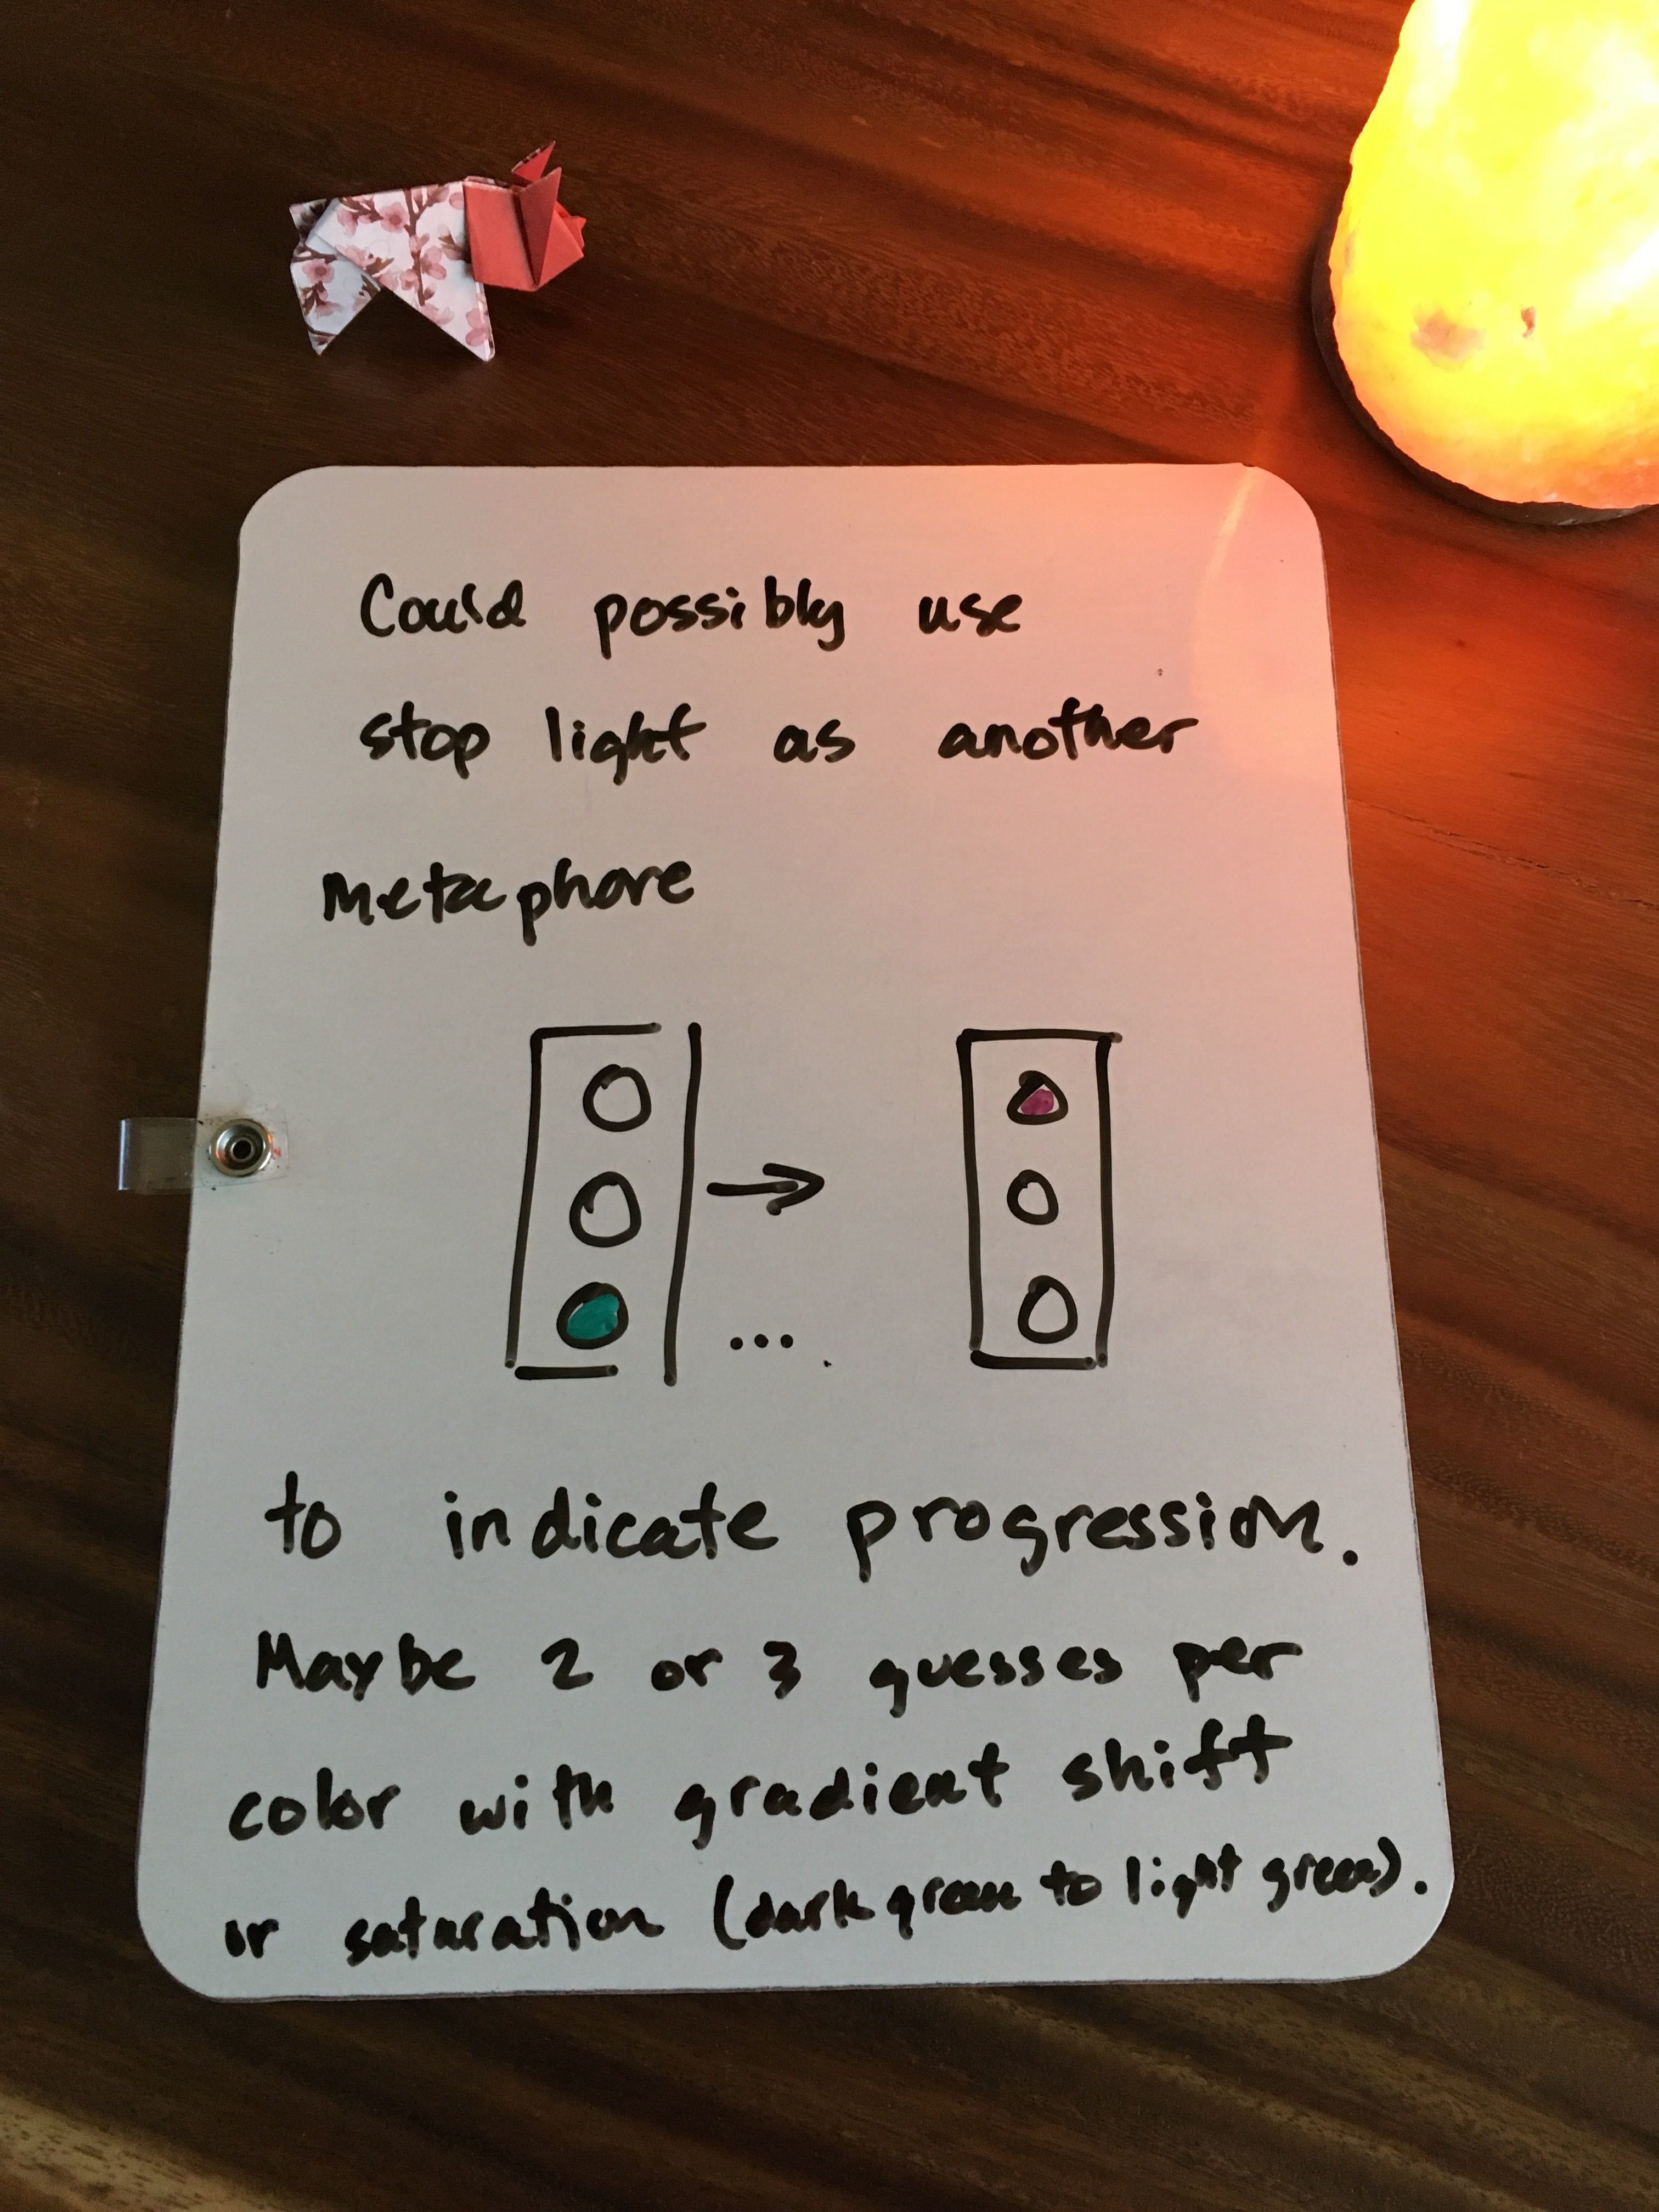 Could possibly use
stop light as another
Metaphore
...
to indicate progression.
Maybe 2 or 3 guesses per
color with gradient shift
or saturation (dark green to light green).